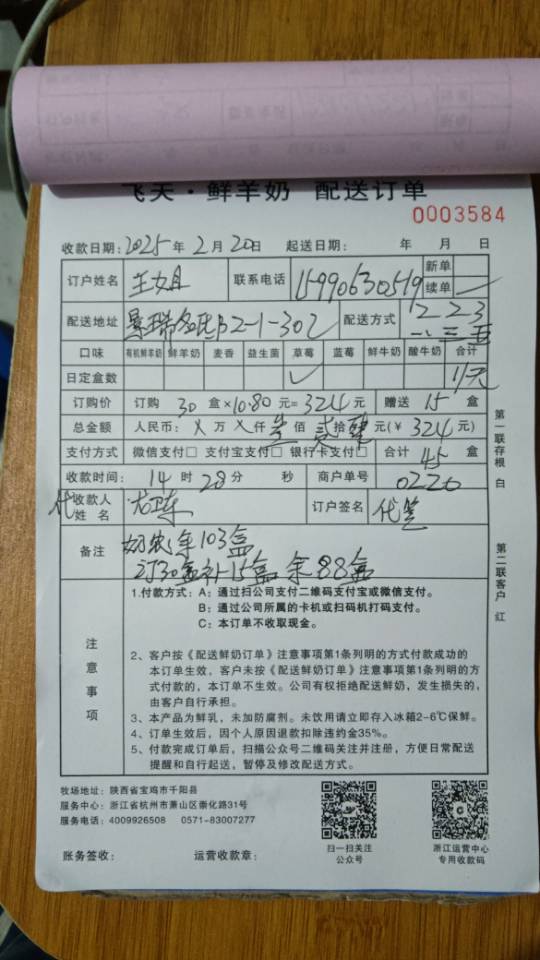 飞天·鲜羊奶 配送订单
0003584
收款日期：2025年2月20日 起送日期： 年 月 日
订户姓名 联系电话 15990630519 新单 续单 ✓
配送地址 B2-1-302 配送方式 1 2 2 3
一、三、五
口味 有机鲜羊奶 鲜羊奶 麦香 益生菌 草莓 蓝莓 鲜牛奶 酸牛奶 合计
日定盒数 ✓ 1/天
订购价 订购 30 盒×10.80元=324元 赠送 15 盒
总金额 人民币：×万×仟叁佰贰拾肆元(￥324元)
支付方式 微信支付□ 支付宝支付□ 银行卡支付□ 合计 45 盒
收款时间： 14 时 28分 秒 商户单号 0220
代收款人姓名 订户签名 代笔
备注 余103盒
订30盒补15盒 余88盒
注意事项
1.付款方式：A：通过扫公司支付二维码支付宝或微信支付。
B：通过公司所属的卡机或扫码机打码支付。
C：本订单不收取现金。
2、客户按《配送鲜奶订单》注意事项第1条列明的方式付款成功的
本订单生效，客户未按《配送鲜奶订单》注意事项第1条列明的方
式付款的，本订单不生效。公司有权拒绝配送鲜奶，发生损失的，
由客户自行承担。
3、本产品为鲜乳，未加防腐剂。未饮用请立即存入冰箱2-6℃保鲜。
4、订单生效后，因个人原因退款扣除违约金35%。
5、付款完成订单后，扫描公众号二维码关注并注册，方便日常配送
提醒和自行起送，暂停及修改配送方式。
第一联存根 白
第二联客户 红
牧场地址：陕西省宝鸡市千阳县
服务中心：浙江省杭州市萧山区崇化路31号
服务电话：4009926508 0571-83007277
扫一扫关注
公众号
浙江运营中心
专用收款码
账务签收： 运营收款章：